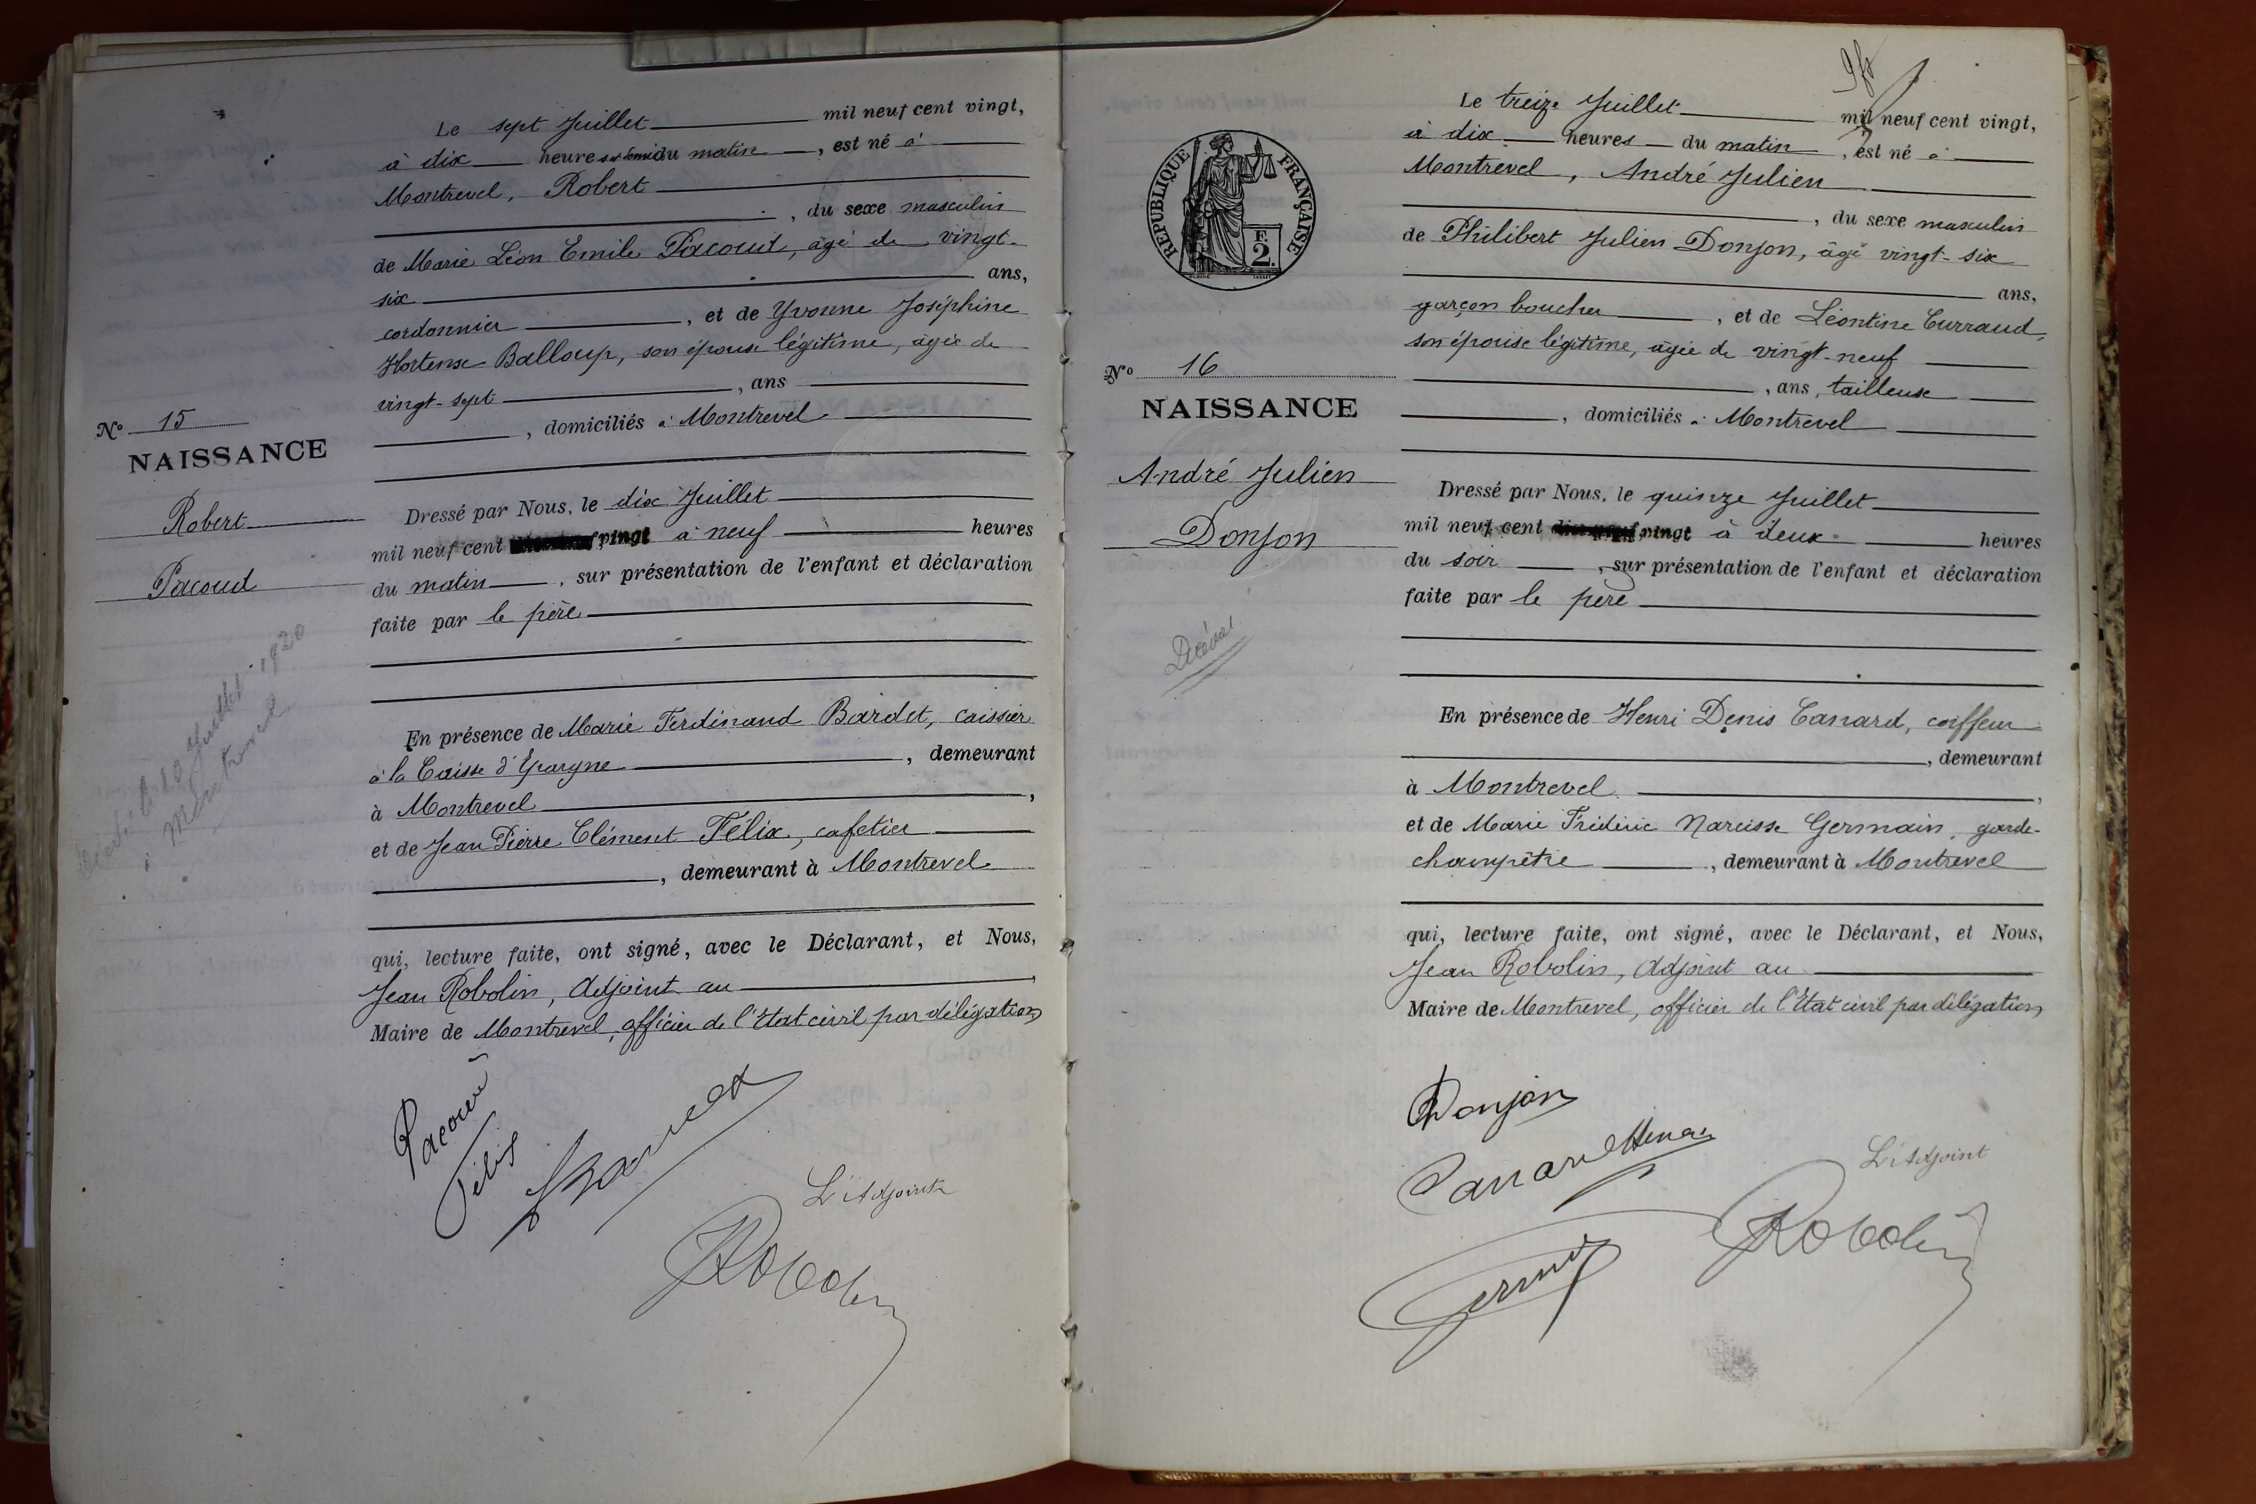 Le sept Juillet mil neuf cent vingt,
à dix heures et demi du matin, est né à
Montrevel, Robert
, du sexe masculin
de Marie Léon Emile Pacoud, âgé de vingt-
six ans,
cordonnier, et de Yvonne Joséphine
Hortense Balloup, son épouse légitime, âgée de
vingt-sept, ans
, domiciliés à Montrevel
No 15
NAISSANCE
Robert
Pacoud
Dressé par Nous, le dix Juillet
mil neuf cent vingt à neuf heures
du matin, sur présentation de l'enfant et déclaration
faite par le père
10 Juillet 1920
à Montrevel
En présence de Marie Ferdinand Bardet, caissier
à la Caisse d'Epargne, demeurant
à Montrevel,
et de Jean Pierre Clément Félix, cafetier
, demeurant à Montrevel
qui, lecture faite, ont signé, avec le Déclarant, et Nous,
Jean Robolin, Adjoint au
Maire de Montrevel, officier de l'Etat civil par délégation
Pacoud
Félix
Bardet
L'Adjoint
Robolin
REPUBLIQUE FRANÇAISE
F.
2.
Le treize Juillet mil neuf cent vingt,
à dix heures du matin, est né à
Montrevel, André Julien
, du sexe masculin
de Philibert Julien Donjon, âgé vingt-six
ans,
garçon boucher, et de Léontine Curraud,
son épouse légitime, âgée de vingt-neuf
, ans, tailleuse
, domiciliés à Montrevel
No 16
NAISSANCE
André Julien
Donjon
Dressé par Nous, le quinze Juillet
mil neuf cent vingt à deux heures
du soir, sur présentation de l'enfant et déclaration
faite par le père
En présence de Henri Denis Canard, coiffeur
, demeurant
à Montrevel,
et de Marie Frédéric Narcisse Germain, garde-
champêtre, demeurant à Montrevel
qui, lecture faite, ont signé, avec le Déclarant, et Nous,
Jean Robolin, Adjoint au
Maire de Montrevel, officier de l'Etat civil par délégation
Donjon
Canard Henri
Germain
L'Adjoint
Robolin